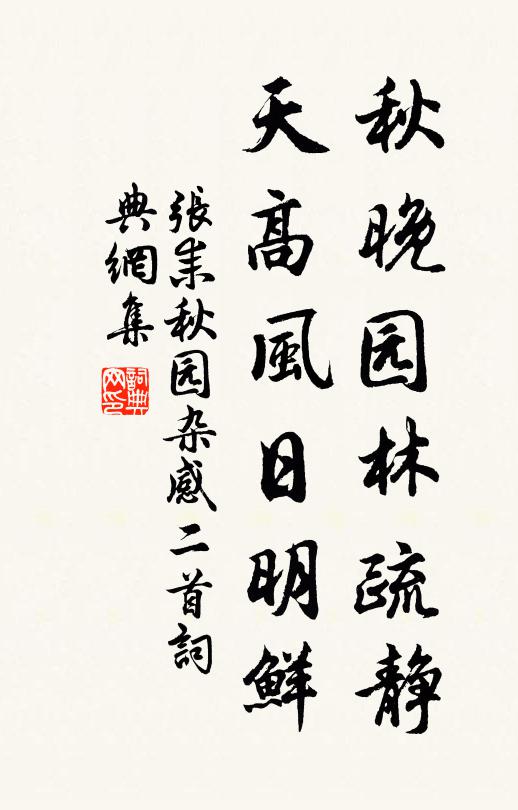 秋晚园林疏静
天高風日明鮮
張耒秋园杂感二首詞
典網集
詞典
网印